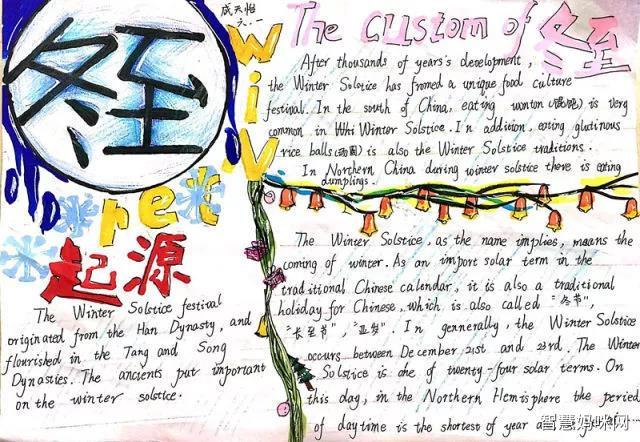 冬至
成天怡
六.一
wiv
ret
The custom of 冬至
After thousands of years's development,
the Winter Solstice has fromed a unique food culture
festival. In the south of China, eating wonton (馄饨) is very
common in Whi Winter Solstice. In addition, eating glutinous
rice balls (汤圆) is also the Winter Solstice traditions.
In Northern China during winter solstice there is eating
dumplings.
起源
The Winter Solstice festival
originated from the Han Dynasty, and
flourished in the Tang and Song
Dynasties. The ancients put important
on the winter solstice.
The Winter Solstice, as the name implies, means the
coming of winter. As an import solar term in the
traditional Chinese calendar, it is also a traditional
holiday for Chinese, which is also called "冬节",
"长至节", "亚岁". In gennerally, the Winter Solstice
occurs between December 21st and 23rd. The Winter
Solstice is one of twenty-four solar terms. On
this day, in the Northern Hemisphere the period
of daytime is the shortest of year
智慧妈咪网